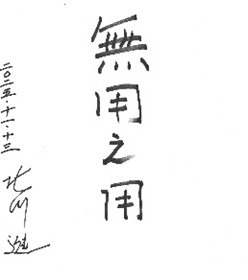 無用之用
二〇二五·十一·十三
北川